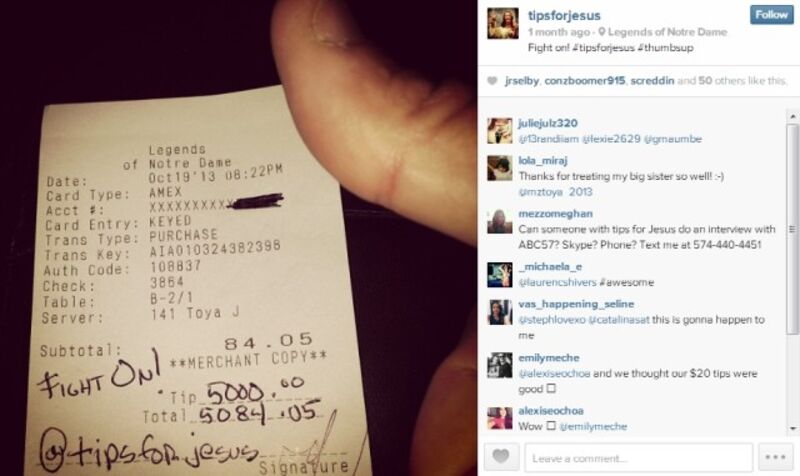 Legends
of Notre Dame
Date: Oct19'13 08:22PM
Card Type: AMEX
Acct #: XXXXXXXXXX
Card Entry: KEYED
Trans Type: PURCHASE
Trans Key: AIA010324382398
Auth Code: 108837
Check: 3864
Table: B-2/1
Server: 141 Toya J
Subtotal: 84.05
**MERCHANT COPY**
FIGHT ON!
Tip 5000.00
Total 5084.05
@tipsforjesus
Signature
tipsforjesus
Follow
1 month ago - Legends of Notre Dame
Fight on! #tipsforjesus #thumbsup
jrselby, conzboomer915, screddin and 50 others like this.
juliejulz320
@13randiiam @lexie2629 @gmaumbe
lola_miraj
Thanks for treating my big sister so well! :-)
@mztoya_2013
mezzomeghan
Can someone with tips for Jesus do an interview with
ABC57? Skype? Phone? Text me at 574-440-4451
_michaela_e
@laurencshivers #awesome
vas_happening_seline
@stephlovexo @catalinasat this is gonna happen to
me
emilymeche
@alexiseochoa and we thought our $20 tips were
good □
alexiseochoa
Wow □ @emilymeche
Leave a comment...